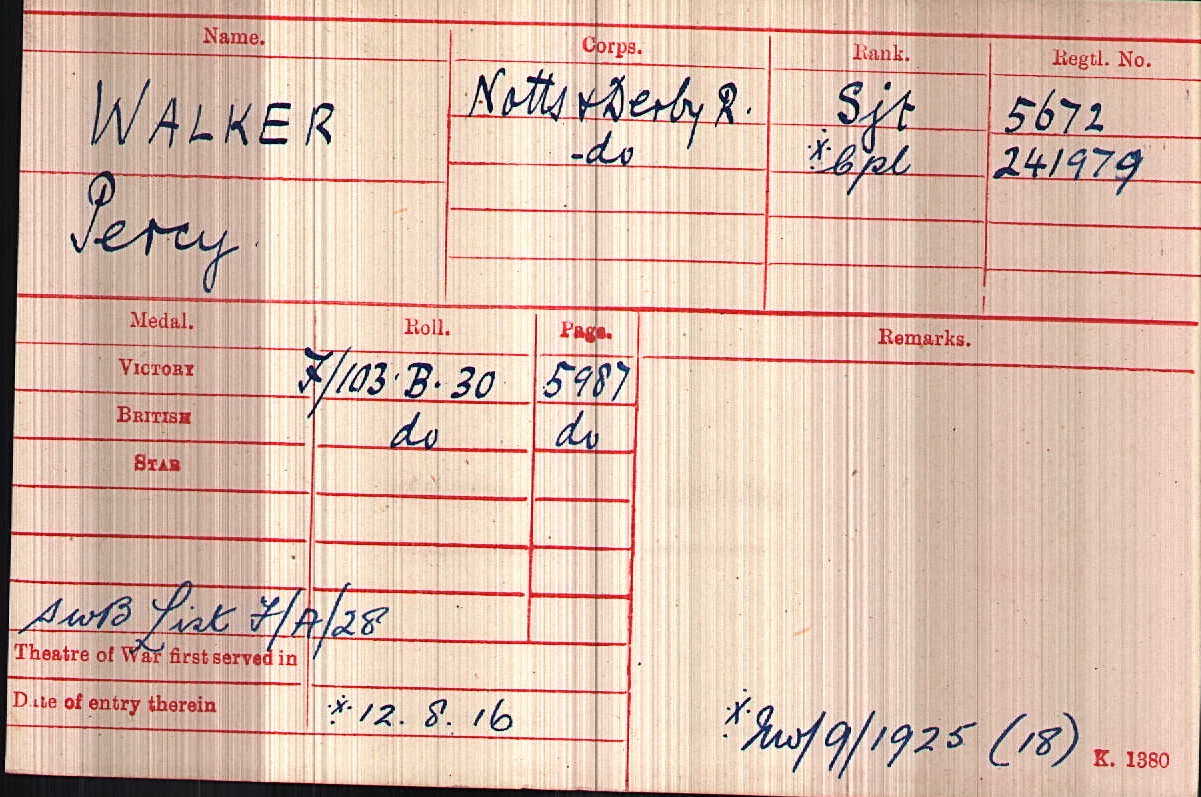 Name. Corps. Rank. Regtl. No.
WALKER Notts & Derby R. Sjt 5672
-do- * Cpl 241979
Percy
Medal. Roll. Page. Remarks.
VICTORY F/103.B.30 5987
BRITISH do do
STAR
SWB List F/A/28
Theatre of War first served in
Date of entry therein * 12. 8. 16
* /9/1925 (18) K. 1380